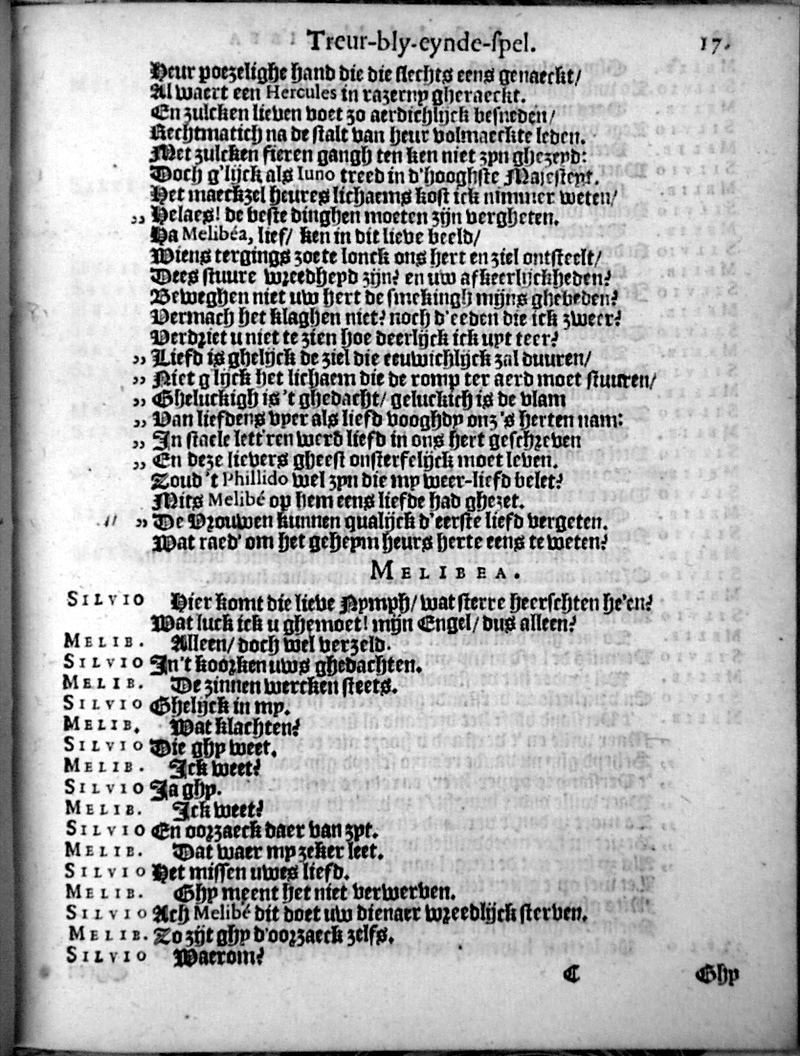 Treur-bly-eynde-ſpel. 17.
Heur poezelighe hand die die ſlechts eens genaeckt/
Al waert een Hercules in razerny gheraeckt.
En zulcken lieven voet zo aerdichlijck beſneden/
Rechtmatich na de ſtalt van heur volmaeckte leden.
Met zulcken fieren gangh ten ken niet zyn ghezeyd:
Doch g'lijck als Iuno treed in d'hooghſte Majeſteyt.
Het maeckzel heures lichaems koſt ick nimmer weten/
„ Helaes! de beſte dinghen moeten zijn vergheten.
Ha Melibéa, lief/ ken in dit lieve beeld/
Wiens tergings zoete lonck ons hert en ziel ontſteelt/
Dees ſtuure wreedheyd zijn? en uw afkeerlijckheden?
Beweghen niet uw hert de ſmekingh mijns ghebeden?
Vermach het klaghen niet? noch d'eeden die ick zweer?
Verdriet u niet te zien hoe deerlijck ick uyt teer?
„ Liefd is ghelijck de ziel die eeuwichlijck zal duuren/
„ Niet g'lijck het lichaem die de romp ter aerd moet ſtuuren/
„ Gheluckigh is 't ghedacht/ geluckich is de vlam
„ Van liefdens vyer als liefd vooghdy onz 's herten nam:
„ In ſtaele lett'ren werd liefd in ons hert geſchreven
„ En deze lievers gheeſt onſterfelijck moet leven.
Zoud 't Phillido wel zyn die my weer-liefd belet?
Mits Melibé op hem eens liefde had ghezet.
„ De Vrouwen kunnen qualijck d'eerſte liefd vergeten.
Wat raed' om het geheym heurs herte eens te weten?
MELIBEA.
SILVIO Hier komt die lieve Nymph/ wat ſterre heerſchten he'en?
Wat luck ick u ghemoet! mijn Engel/ dus alleen?
MELIB. Alleen/ doch wel verzeld.
SILVIO In't koorken uws ghedachten.
MELIB. De zinnen wercken ſteets.
SILVIO Ghelijck in my.
MELIB. Wat klachten?
SILVIO Die ghy weet.
MELIB. Ick weet?
SILVIO Ja ghy.
MELIB. Ick weet?
SILVIO En oorzaeck daer van zyt.
MELIB. Dat waer my zeker leet.
SILVIO Het miſſen uwes liefd.
MELIB. Ghy meent het niet verwerven.
SILVIO Ach Melibé dit doet uw dienaer wreedlijck ſterven.
MELIB. Zo zijt ghy d'oorzaeck zelfs.
SILVIO Waerom?
C Ghy